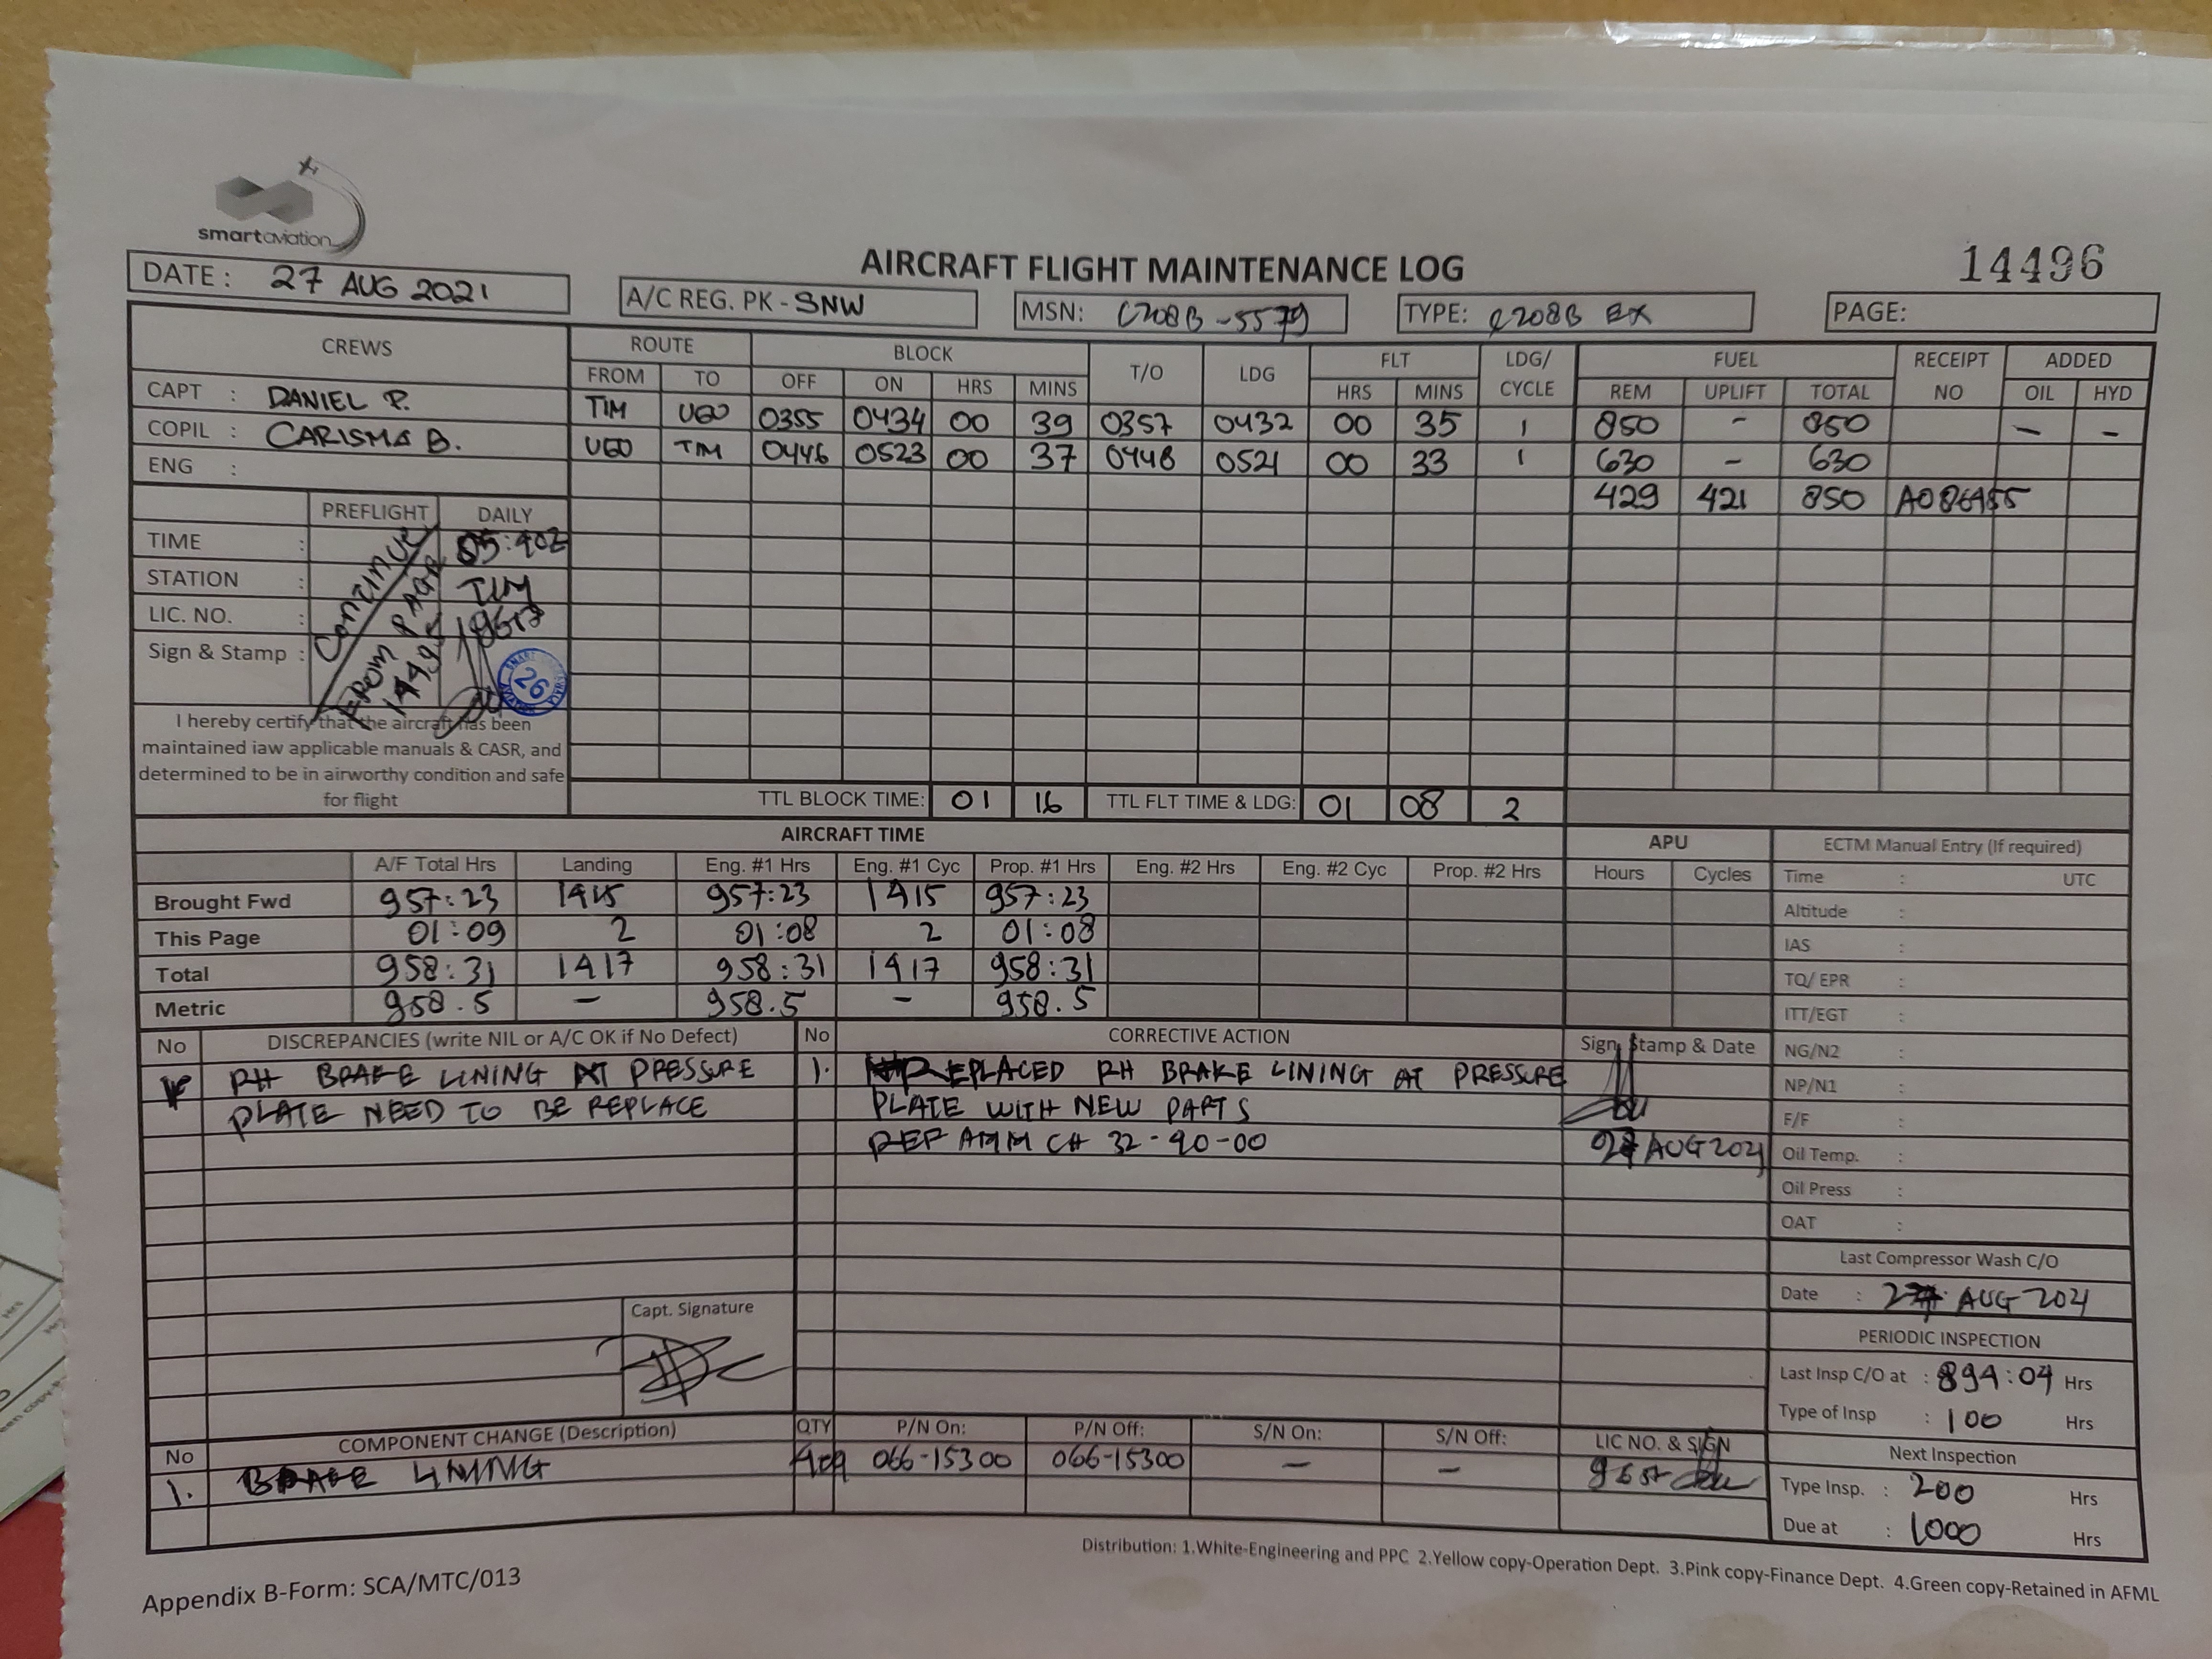 smartaviation
AIRCRAFT FLIGHT MAINTENANCE LOG
14496
DATE : 27 AUG 2021
A/C REG. PK - SNW
MSN: C208B-5579
TYPE: C208B EX
PAGE:
CREWS
ROUTE BLOCK T/O LDG FLT LDG/ CYCLE FUEL RECEIPT NO ADDED
FROM TO OFF ON HRS MINS HRS MINS REM UPLIFT TOTAL OIL HYD
CAPT : DANIEL P.
COPIL : CARISMA B.
ENG :
TIM UGO 0355 0434 00 39 0357 0432 00 35 1 850 - 850 - -
UGO TIM 0446 0523 00 37 0448 0521 00 33 1 630 - 630
429 421 850
PREFLIGHT DAILY
TIME :
STATION : TIM
LIC. NO. :
Sign & Stamp :
CONTINUE
FROM PAGE
26
I hereby certify that the aircraft has been
maintained iaw applicable manuals & CASR, and
determined to be in airworthy condition and safe
for flight
TTL BLOCK TIME: 01 16 TTL FLT TIME & LDG: 01 08 2
AIRCRAFT TIME
A/F Total Hrs Landing Eng. #1 Hrs Eng. #1 Cyc Prop. #1 Hrs Eng. #2 Hrs Eng. #2 Cyc Prop. #2 Hrs
Brought Fwd 957:23 1415 957:23 1415 957:23
This Page 01:09 2 01:08 2 01:08
Total 958:31 1417 958:31 1417 958:31
Metric 958.5 - 958.5 - 958.5
APU
Hours Cycles
ECTM Manual Entry (If required)
Time : UTC
Altitude :
IAS :
TQ/ EPR :
ITT/EGT :
NG/N2 :
NP/N1 :
F/F :
Oil Temp. :
Oil Press :
OAT :
No DISCREPANCIES (write NIL or A/C OK if No Defect)
RH BRAKE LINING AT PRESSURE
PLATE NEED TO BE REPLACE
Capt. Signature
No CORRECTIVE ACTION Sign, Stamp & Date
1. REPLACED RH BRAKE LINING AT PRESSURE
PLATE WITH NEW PARTS
REF AMM CH 32-40-00
AUG 2021
Last Compressor Wash C/O
Date : 27 AUG 2021
PERIODIC INSPECTION
Last Insp C/O at : 894:04 Hrs
Type of Insp : 100 Hrs
Next Inspection
Type Insp. : 200 Hrs
Due at : 1000 Hrs
No COMPONENT CHANGE (Description) QTY P/N On: P/N Off: S/N On: S/N Off: LIC NO. & SIGN
1. BRAKE LINING 066-15300 066-15300 - -
Distribution: 1.White-Engineering and PPC 2.Yellow copy-Operation Dept. 3.Pink copy-Finance Dept. 4.Green copy-Retained in AFML
Appendix B-Form: SCA/MTC/013